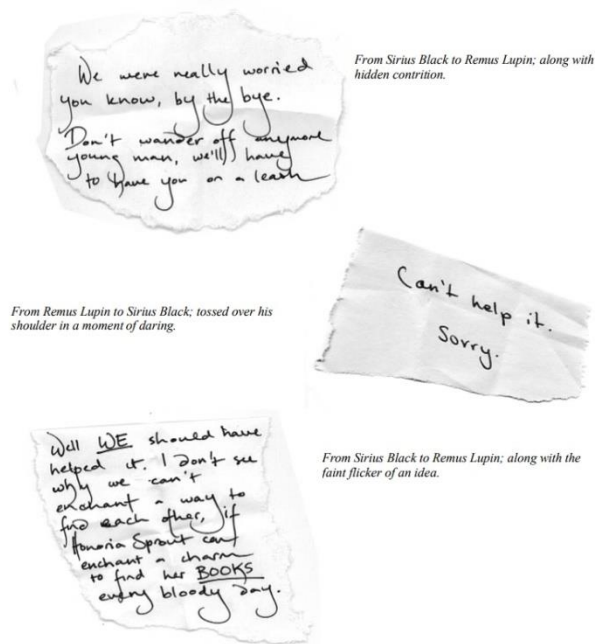 We were really worried
you know, by the bye.
Don't wander off anymore
young man, we'll have
to have you on a leash
From Sirius Black to Remus Lupin; along with
hidden contrition.
Can't help it.
Sorry.
From Remus Lupin to Sirius Black; tossed over his
shoulder in a moment of daring.
Well WE should have
helped it. I don't see
why we can't
enchant a way to
find each other, if
Honoria Sprout can
enchant a charm
to find her BOOKS
every bloody day.
From Sirius Black to Remus Lupin; along with the
faint flicker of an idea.